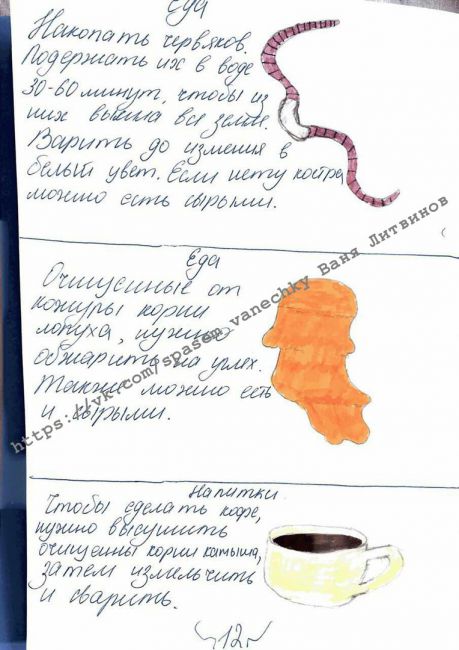 Еда
Накопать червяков.
Подержать их в воде
30-60 минут, чтобы из
них вышла вся земля.
Варить до измения в
белый цвет. Если нету костра
можно есть сырыми.
Еда
Очищенные от
кожуры корни
лопуха, нужно
обжарить на углях.
Также можно есть
и сырыми.
https://vk.com/spasem_vanechky Ваня Литвинов
Напитки
Чтобы сделать кофе,
нужно высушить
очищенны корни камыша,
затем измельчить
и сварить.
12